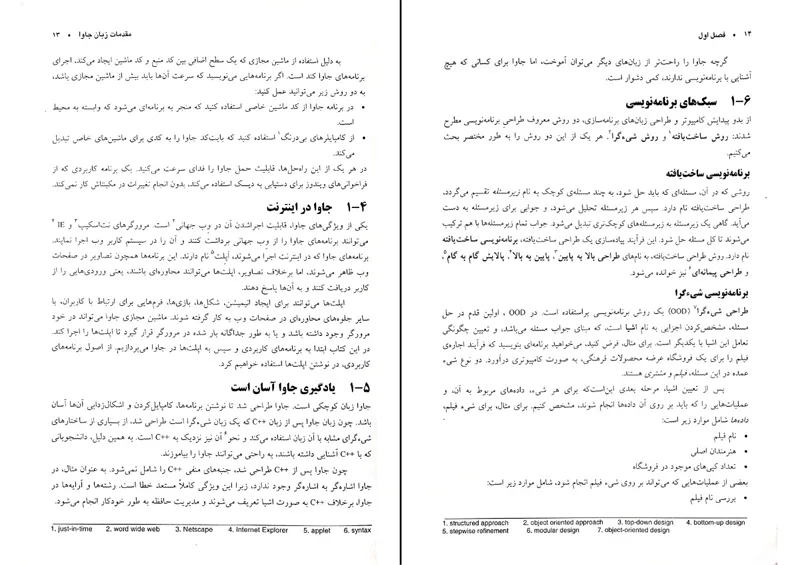 مقدمات زبان جاوا • ۱۳
به دلیل استفاده از ماشین مجازی که یک سطح اضافی بین کد منبع و کد ماشین ایجاد می‌کند، اجرای
برنامه‌های جاوا کند است. اگر برنامه‌هایی می‌نویسید که سرعت آن‌ها باید بیش از ماشین مجازی باشد،
به دو روش زیر می‌توانید عمل کنید:
• در برنامه جاوا از کد ماشین خاصی استفاده کنید که منجر به برنامه‌ای می‌شود که وابسته به محیط
است.
• از کامپایلرهای بی‌درنگ۱ استفاده کنید که بایت‌کد جاوا را به کدی برای ماشین‌های خاص تبدیل
می‌کند.
در هر یک از این راه‌حل‌ها، قابلیت حمل جاوا را فدای سرعت می‌کنید. یک برنامه کاربردی که از
فراخوانی‌های ویندوز برای دستیابی به دیسک استفاده می‌کند، بدون انجام تغییرات در مکینتاش کار نمی‌کند.
۱-۴ جاوا در اینترنت
یکی از ویژگی‌های جاوا، قابلیت اجراشدن آن در وب جهانی۲ است. مرورگرهای نت‌اسکیپ۳ و IE۴
می‌توانند برنامه‌های جاوا را از وب جهانی برداشت کنند و آن را در سیستم کاربر وب اجرا نمایند.
برنامه‌های جاوا که در اینترنت اجرا می‌شوند، اَپلت۵ نام دارند. این برنامه‌ها همچون تصاویر در صفحات
وب ظاهر می‌شوند، اما برخلاف تصاویر، اپلت‌ها می‌توانند محاوره‌ای باشند، یعنی ورودی‌هایی را از
کاربر دریافت کنند و به آن‌ها پاسخ دهند.
اپلت‌ها می‌توانند برای ایجاد انیمیشن، شکل‌ها، بازی‌ها، فرم‌هایی برای ارتباط با کاربران، یا
سایر جلوه‌های محاوره‌ای در صفحات وب به کار گرفته شوند. ماشین مجازی جاوا می‌تواند در خود
مرورگر وجود داشته باشد و یا به طور جداگانه بار شده در مرورگر قرار گیرد تا اپلت‌ها را اجرا کند.
در این کتاب ابتدا به برنامه‌های کاربردی و سپس به اپلت‌ها در جاوا می‌پردازیم. از اصول برنامه‌های
کاربردی، در نوشتن اپلت‌ها استفاده خواهیم کرد.
۱-۵ یادگیری جاوا آسان است
جاوا زبان کوچکی است. جاوا طراحی شد تا نوشتن برنامه‌ها، کامپایل‌کردن و اشکال‌زدایی آن‌ها آسان
باشد. چون زبان جاوا پس از زبان C++ که یک زبان شیءگرا است طراحی شد، از بسیاری از ساختارهای
شیءگرای مشابه با آن زبان استفاده می‌کند و نحو۶ آن نیز نزدیک به C++ است. به همین دلیل، دانشجویانی
که با C++ آشنایی داشته باشند، به راحتی می‌توانند جاوا را بیاموزند.
چون جاوا پس از C++ طراحی شد، جنبه‌های منفی C++ را شامل نمی‌شود. به عنوان مثال، در
جاوا اشاره‌گر به اشاره‌گر وجود ندارد، زیرا این ویژگی کاملاً مستعد خطا است. رشته‌ها و آرایه‌ها در
جاوا، برخلاف C++ به صورت اشیا تعریف می‌شوند و مدیریت حافظه به طور خودکار انجام می‌شود.
1. just-in-time 2. word wide web 3. Netscape 4. Internet Explorer 5. applet 6. syntax
۱۴ • فصل اول
گرچه جاوا را راحت‌تر از زبان‌های دیگر می‌توان آموخت، اما جاوا برای کسانی که هیچ
آشنایی با برنامه‌نویسی ندارند، کمی دشوار است.
۱-۶ سبک‌های برنامه‌نویسی
از بدو پیدایش کامپیوتر و طراحی زبان‌های برنامه‌سازی، دو روش معروف طراحی برنامه‌نویسی مطرح
شدند: روش ساخت‌یافته۱ و روش شیءگرا۲. هر یک از این دو روش را به طور مختصر بحث
می‌کنیم.
برنامه‌نویسی ساخت‌یافته
روشی که در آن، مسئله‌ای که باید حل شود، به چند مسئله‌ی کوچک به نام زیرمسئله تقسیم می‌گردد،
طراحی ساخت‌یافته نام دارد. سپس هر زیرمسئله تحلیل می‌شود، و جوابی برای زیرمسئله به دست
می‌آید. گاهی یک زیرمسئله به زیرمسئله‌های کوچک‌تری تبدیل می‌شود. جواب تمام زیرمسئله‌ها با هم ترکیب
می‌شوند تا کل مسئله حل شود. این فرآیند پیاده‌سازی یک طراحی ساخت‌یافته، برنامه‌نویسی ساخت‌یافته
نام دارد. روش طراحی ساخت‌یافته، به نام‌های طراحی بالا به پایین۳، پایین به بالا۴، پالایش گام به گام۵،
و طراحی پیمانه‌ای۶ نیز خوانده می‌شود.
برنامه‌نویسی شیءگرا
طراحی شیءگرا۷ (OOD) یک روش برنامه‌نویسی پراستفاده است. در OOD، اولین قدم در حل
مسئله، مشخص‌کردن اجزایی به نام اشیا است، که مبنای جواب مسئله می‌باشد، و تعیین چگونگی
تعامل این اشیا با یکدیگر است. برای مثال، فرض کنید، می‌خواهید برنامه‌ای بنویسید که فرآیند اجاره‌ی
فیلم را برای یک فروشگاه عرضه محصولات فرهنگی، به صورت کامپیوتری درآورد. دو نوع شیء
عمده در این مسئله، فیلم و مشتری هستند.
پس از تعیین اشیا، مرحله بعدی این‌است‌که برای هر شیء، داده‌های مربوط به آن، و
عملیات‌هایی را که باید بر روی آن داده‌ها انجام شوند، مشخص کنیم. برای مثال، برای شیء فیلم،
داده‌ها شامل موارد زیر است:
• نام فیلم
• هنرمندان اصلی
• تعداد کپی‌های موجود در فروشگاه
بعضی از عملیات‌هایی که می‌تواند بر روی شیء فیلم انجام شود، شامل موارد زیر است:
• بررسی نام فیلم
1. structured approach 2. object oriented approach 3. top-down design 4. bottom-up design
5. stepwise refinement 6. modular design 7. object-oriented design